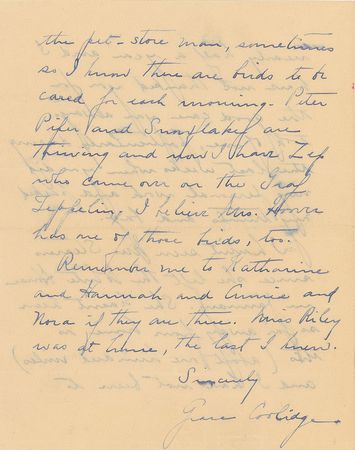 the pet-store man, sometimes
so I know there are birds to be
cared for each morning. Peter
Piper and Snowflake are
thriving and now I have Zep
who came over on the Graf
Zeppelin. I believe Mrs. Hoover
has one of those birds, too.
Remember me to Katharine
and Hannah and Annie and
Nora if they are there. Miss Riley
was at home, the last I knew.
Sincerely
Grace Coolidge.